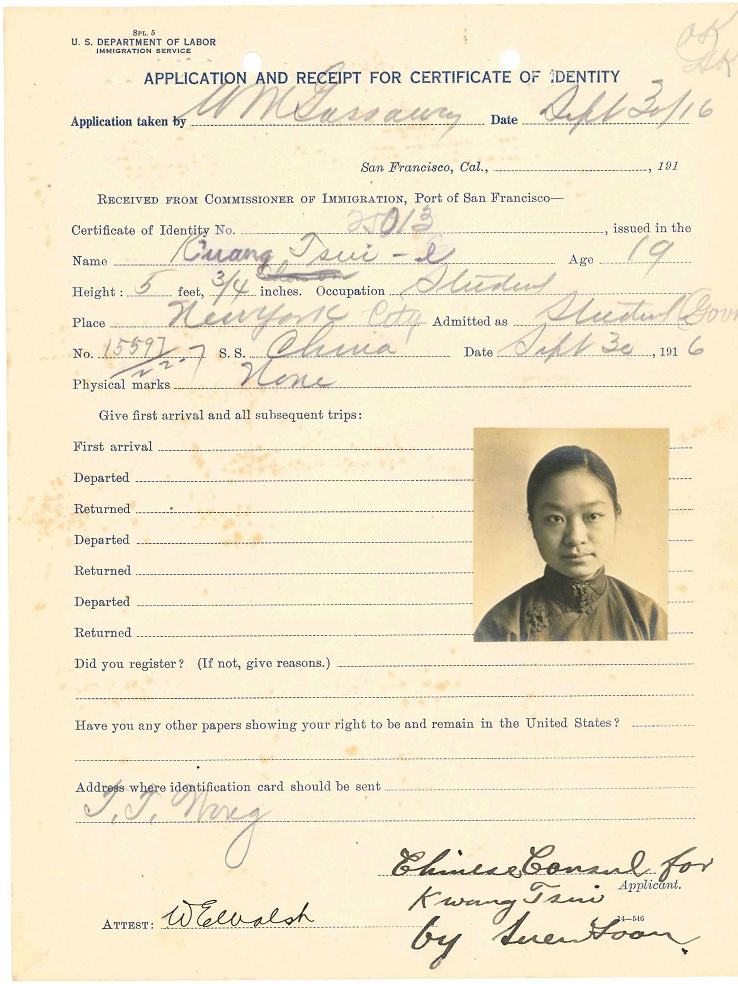 SPL. 5
U. S. DEPARTMENT OF LABOR
IMMIGRATION SERVICE
OK
APPLICATION AND RECEIPT FOR CERTIFICATE OF IDENTITY
Application taken by W M Gassaway Date Sept 30/16
San Francisco, Cal., , 191
RECEIVED FROM COMMISSIONER OF IMMIGRATION, Port of San Francisco—
Certificate of Identity No. 25013, issued in the
Name Kwang Tsui - e Age 19
Height: 5 feet, 3/4 inches. Occupation Student
Place New York City Admitted as Student (Gov
No. 15597 S. S. China Date Sept 30, 1916
22-7
Physical marks None
Give first arrival and all subsequent trips:
First arrival
Departed
Returned
Departed
Returned
Departed
Returned
Did you register? (If not, give reasons.)
Have you any other papers showing your right to be and remain in the United States?
Address where identification card should be sent
T. T. Wong
Chinese Consul for
Applicant.
Kwang Tsui
ATTEST: W E Walsh
14—546
by Suen Soon.